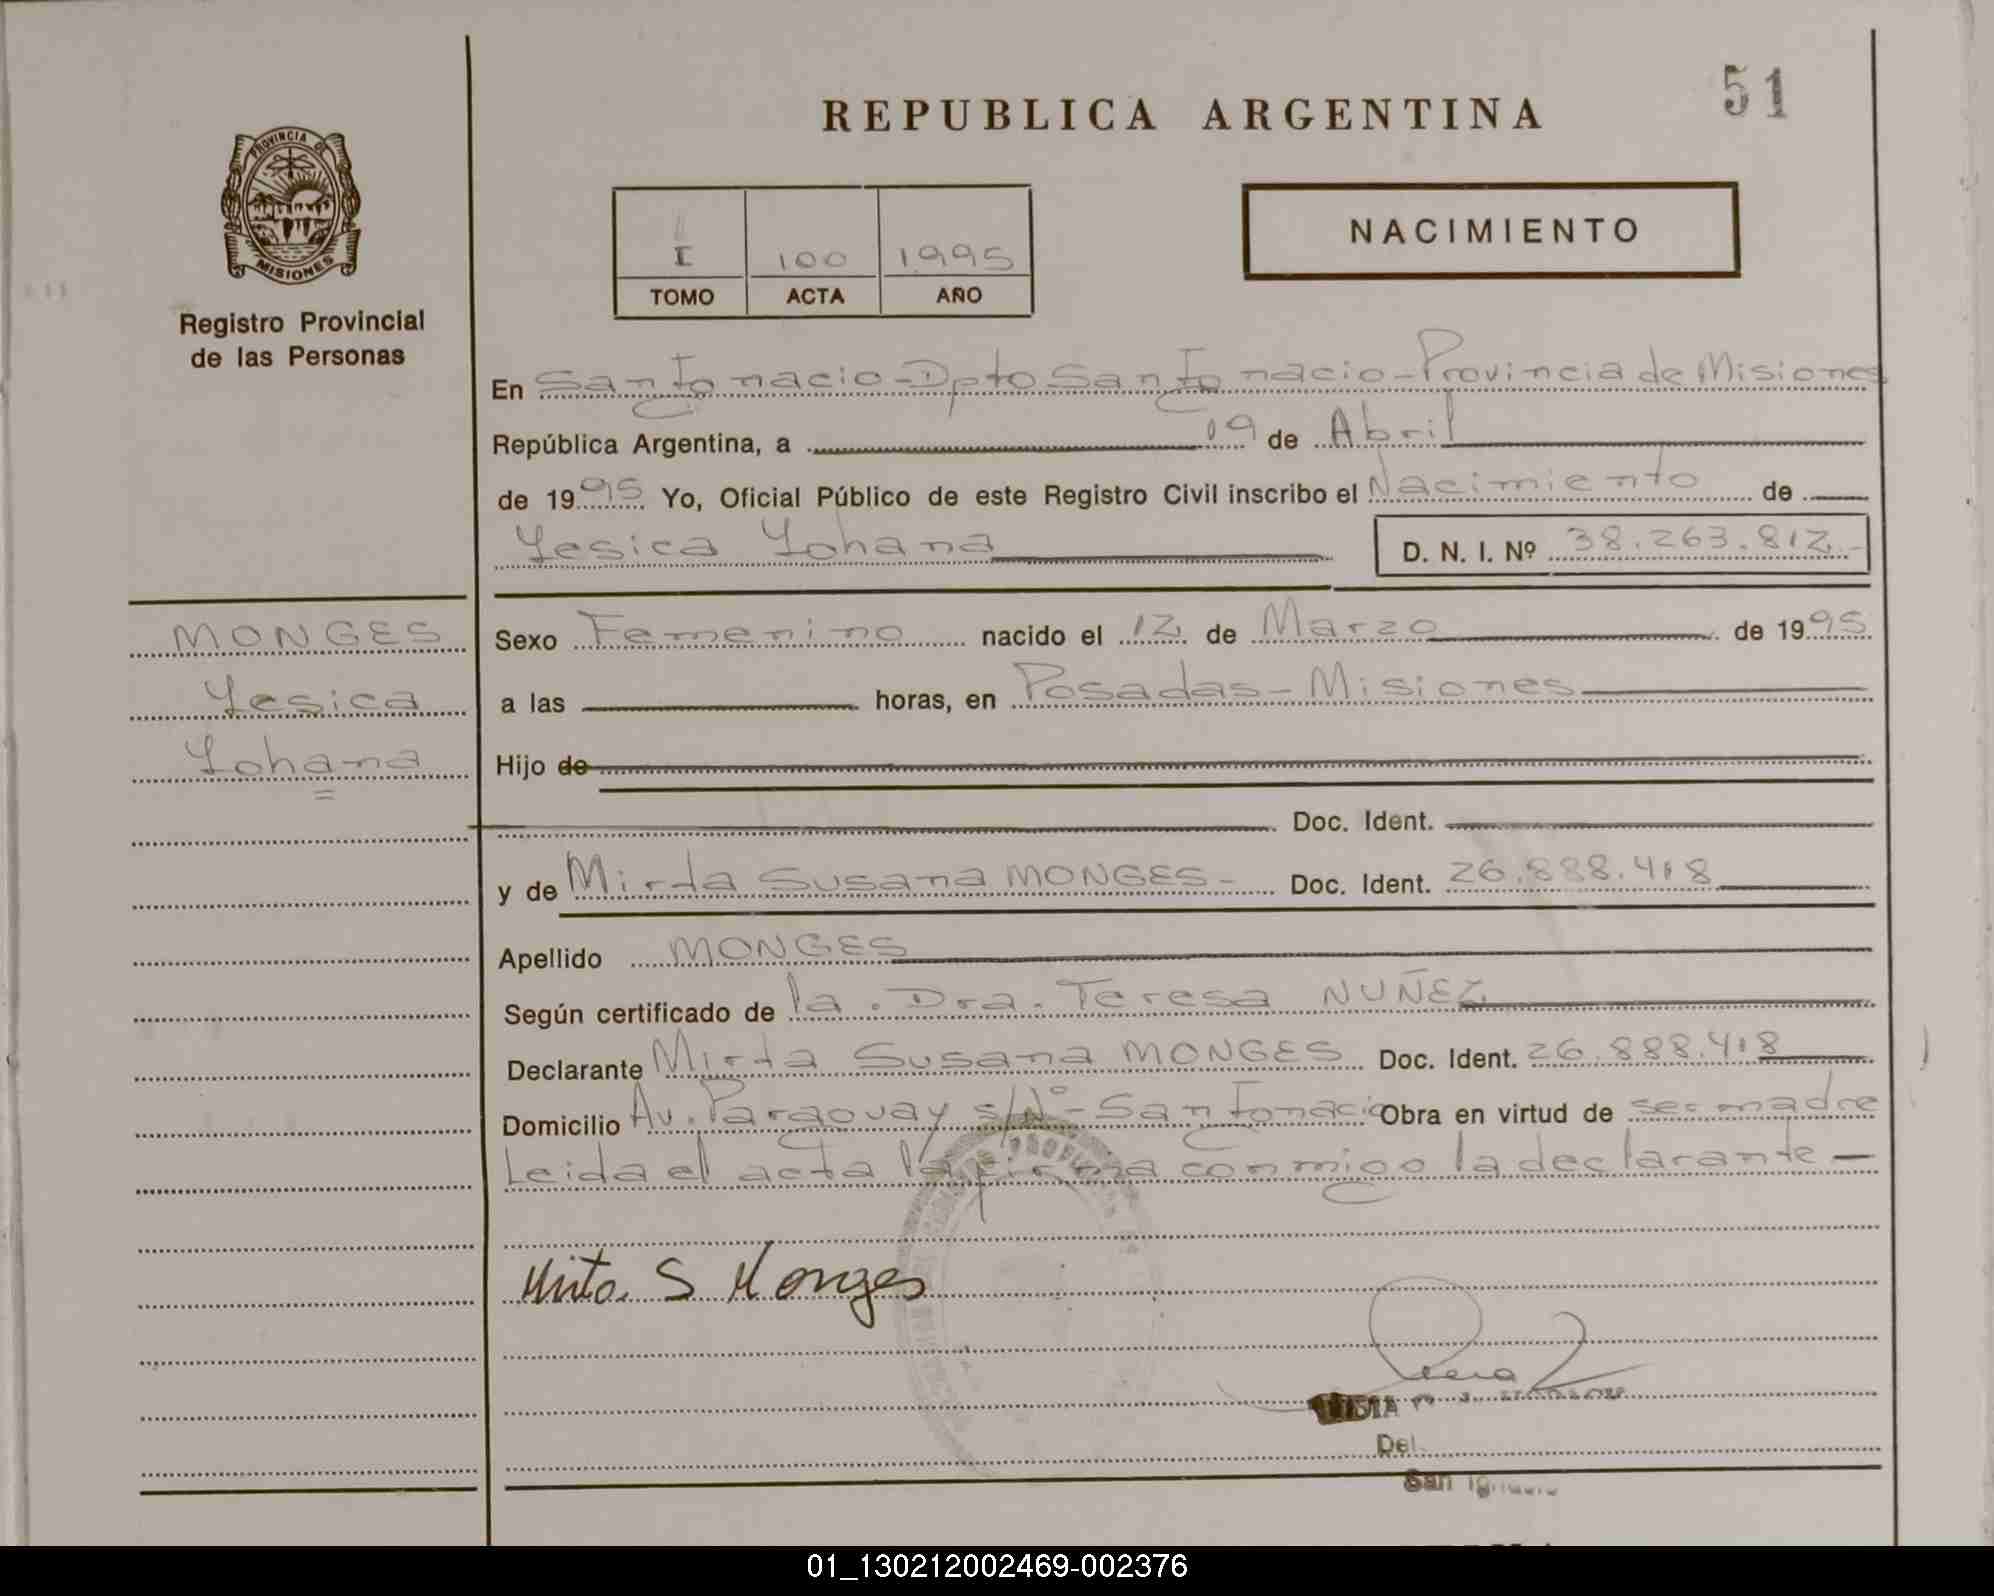 REPUBLICA ARGENTINA
51
PROVINCIA DE
MISIONES
Registro Provincial
de las Personas
I 100 1995
TOMO ACTA AÑO
NACIMIENTO
En San Ignacio - Dpto San Ignacio - Provincia de Misiones
República Argentina, a 19 de Abril
de 1995 Yo, Oficial Público de este Registro Civil inscribo el Nacimiento de
Yesica Yohana
D. N. I. Nº 38.263.812.-
MONGES
Yesica
Yohana
Sexo Femenino nacido el 12 de Marzo de 1995
a las horas, en Posadas - Misiones
Hijo de
Doc. Ident.
y de Mirta Susana MONGES - Doc. Ident. 26.888.418
Apellido MONGES
Según certificado de la . Dra. Teresa NUÑEZ
Declarante Mirta Susana MONGES Doc. Ident. 26.888.418
Domicilio Av. Paraguay s/Nº - San Ignacio Obra en virtud de ser madre
Leida el acta la firma conmigo la declarante -
Mirta S Monges
Del.
San Ignacio
01_130212002469-002376